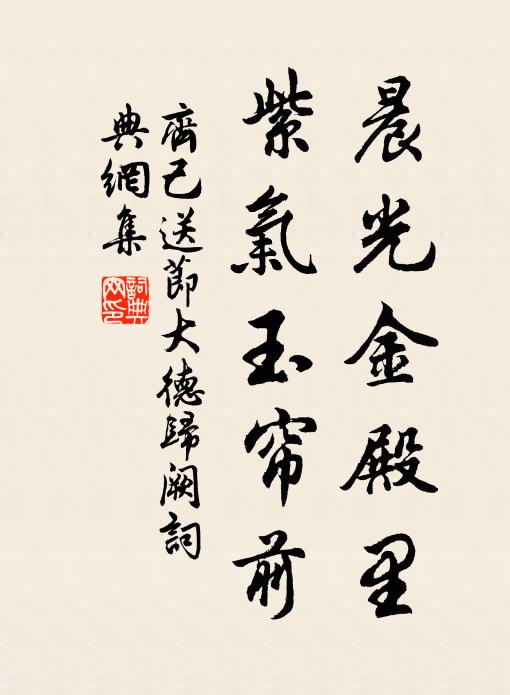 晨光金殿里
紫氣玉帘前
齊己送節大德歸阙詞
典網集
詞典网印